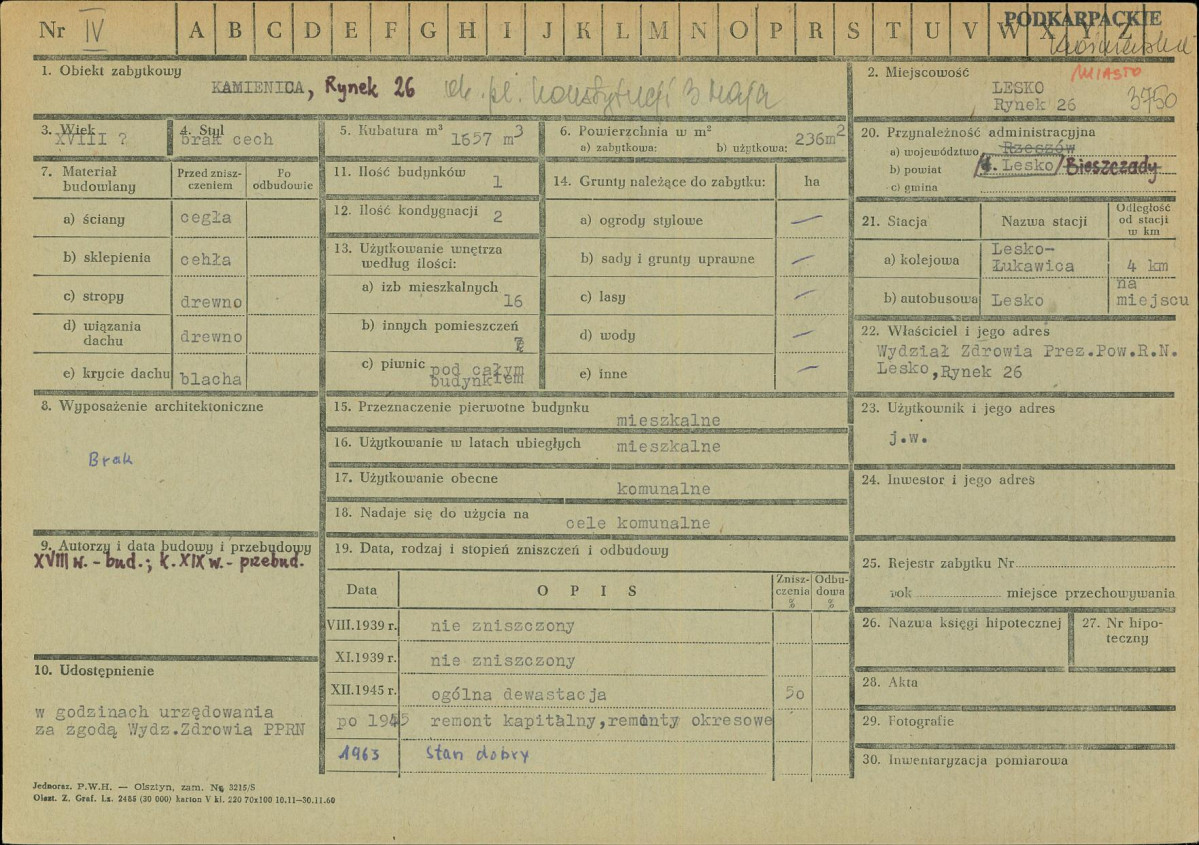 Nr IV A B C D E F G H I J K L M N O P R S T U V W X Y Z
PODKARPACKIE
1. Obiekt zabytkowy
KAMIENICA, Rynek 26 ob. pl. Konstytucji 3 Maja
2. Miejscowość
MIASTO
LESKO
Rynek 26
3750
3. Wiek
XVIII ?
4. Styl
brak cech
5. Kubatura m³
1657 m³
6. Powierzchnia w m²
a) zabytkowa: b) użytkowa: 236m²
7. Materiał budowlany
Przed zniszczeniem
Po odbudowie
a) ściany cegła
b) sklepienia cehła
c) stropy drewno
d) wiązania dachu drewno
e) krycie dachu blacha
11. Ilość budynków 1
12. Ilość kondygnacji 2
13. Użytkowanie wnętrza według ilości:
a) izb mieszkalnych 16
b) innych pomieszczeń 7
c) piwnic pod całym budynkiem
14. Grunty należące do zabytku: ha
a) ogrody stylowe —
b) sady i grunty uprawne —
c) lasy —
d) wody —
e) inne —
20. Przynależność administracyjna
a) województwo Rzeszów
b) powiat Lesko/Bieszczady
c) gmina
21. Stacja
Nazwa stacji
Odległość od stacji w km
a) kolejowa Lesko-Łukawica 4 km
b) autobusowa Lesko na miejscu
22. Właściciel i jego adres
Wydział Zdrowia Prez.Pow.R.N.
Lesko,Rynek 26
8. Wyposażenie architektoniczne
Brak
15. Przeznaczenie pierwotne budynku
mieszkalne
16. Użytkowanie w latach ubiegłych mieszkalne
17. Użytkowanie obecne
komunalne
18. Nadaje się do użycia na
cele komunalne
23. Użytkownik i jego adres
j.w.
24. Inwestor i jego adres
9. Autorzy i data budowy i przebudowy
XVIII w. - bud.; k. XIX w. - przebud.
19. Data, rodzaj i stopień zniszczeń i odbudowy
Data
OPIS
Zniszczenia %
Odbudowa %
VIII.1939 r. nie zniszczony
XI.1939 r. nie zniszczony
XII.1945 r. ogólna dewastacja 50
po 1945 remont kapitalny,remonty okresowe
1963 stan dobry
10. Udostępnienie
w godzinach urzędowania
za zgodą Wydz.Zdrowia PPRN
25. Rejestr zabytku Nr
rok miejsce przechowywania
26. Nazwa księgi hipotecznej
27. Nr hipoteczny
28. Akta
29. Fotografie
30. Inwentaryzacja pomiarowa
Jednoraz. P.W.H. — Olsztyn, zam. Nr 3215/S
Olszt. Z. Graf. l.z. 2485 (30 000) karton V kl. 220 70x100 10.11—30.11.60